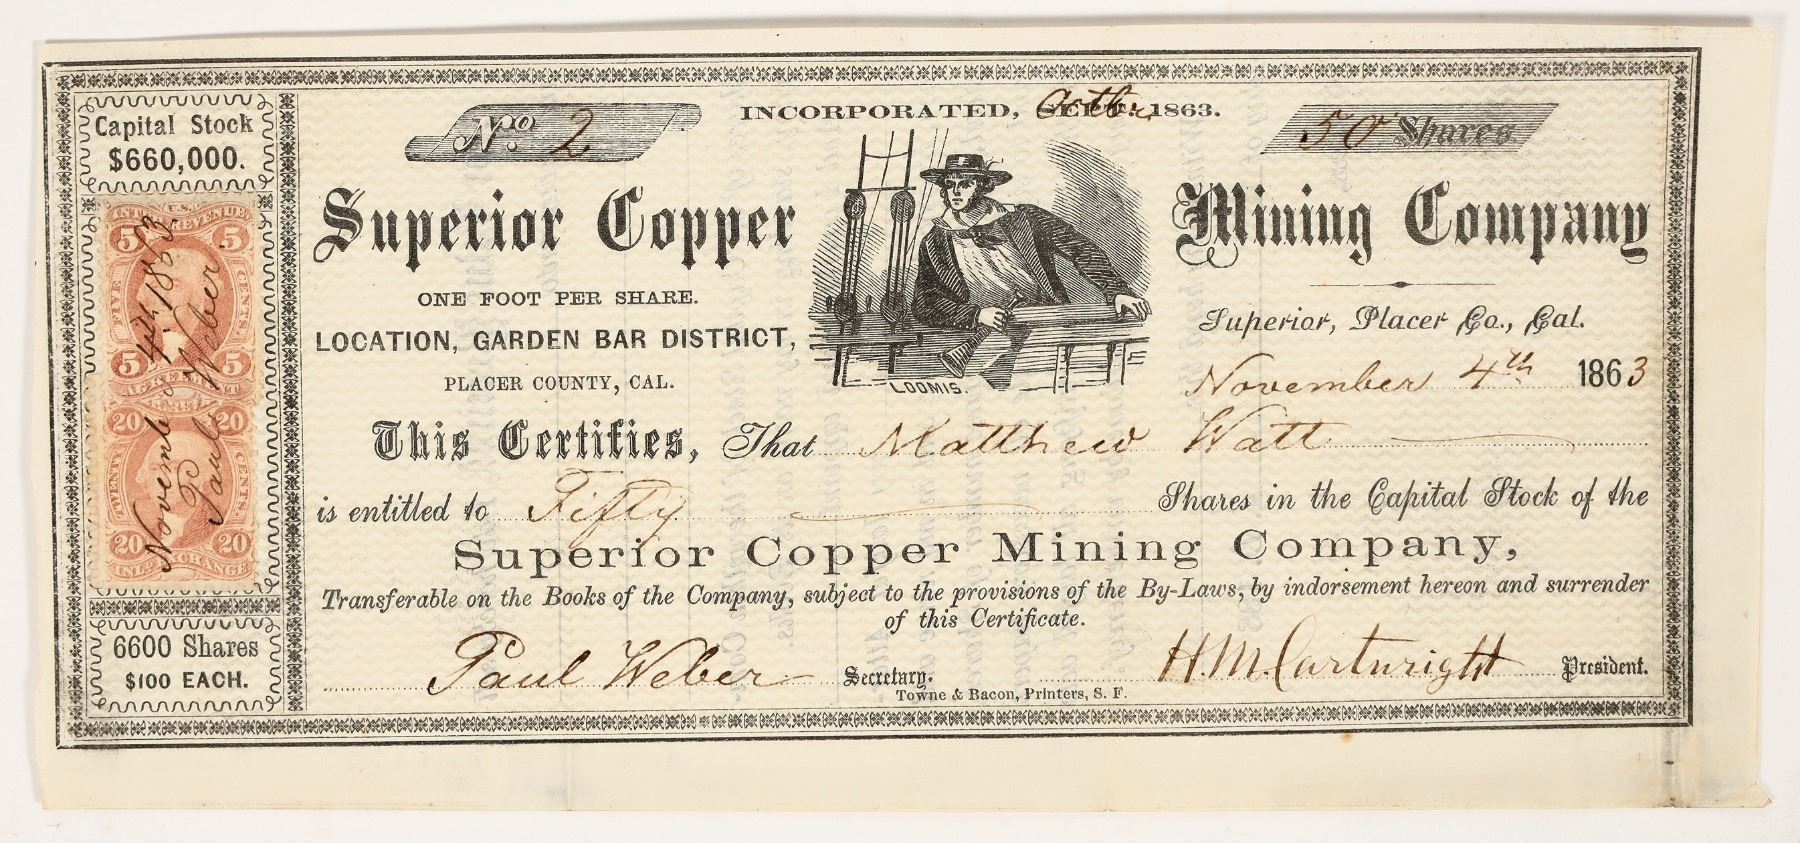 Capital Stock
$660,000.
INTER. U.S. REVENUE
5 5
FIVE CENTS
5 5
AGREEMENT
20 20
TWENTY CENTS
20 20
INL'D EXCHANGE
November 4th 1863.
Paul Weber.
6600 Shares
$100 EACH.
No. 2
INCORPORATED, SEPT. Octbr. 1863.
50 Shares
Superior Copper Mining Company
ONE FOOT PER SHARE.
LOCATION, GARDEN BAR DISTRICT,
PLACER COUNTY, CAL.
LOOMIS.
Superior, Placer Co., Cal.
November 4th 1863
This Certifies, That Matthew Watt
is entitled to Fifty Shares in the Capital Stock of the
Superior Copper Mining Company,
Transferable on the Books of the Company, subject to the provisions of the By-Laws, by indorsement hereon and surrender
of this Certificate.
Paul Weber Secretary. H. M. Cartwright President.
Towne & Bacon, Printers, S. F.